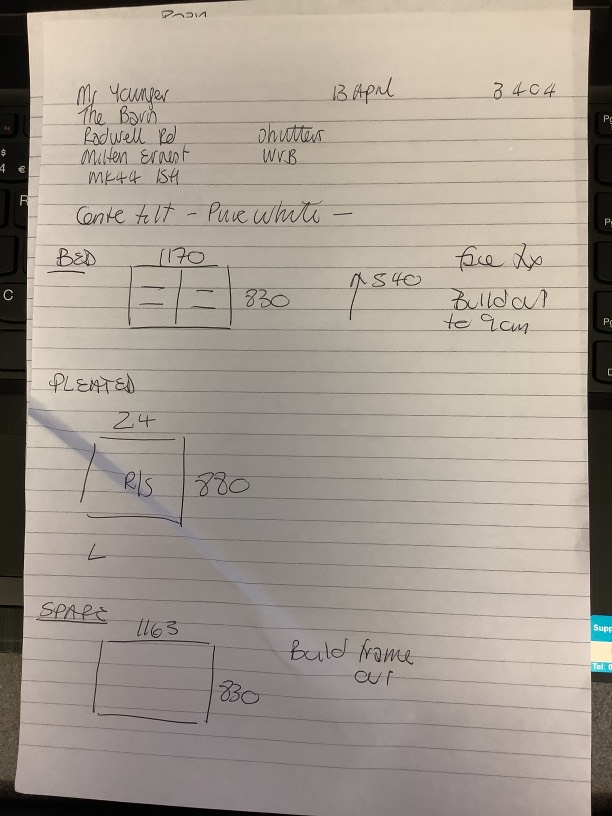 Mr Younger 13 April 3404
The Barn
Radwell Rd Shutters
Milton Ernest WVB
MK44 1SH
Centre tilt - Pure White -
BED 1170 face fix
830 540 Build out
to 9cm
PLEATED
24
R/S 880
L
SPARE
1163
Build frame
out
830